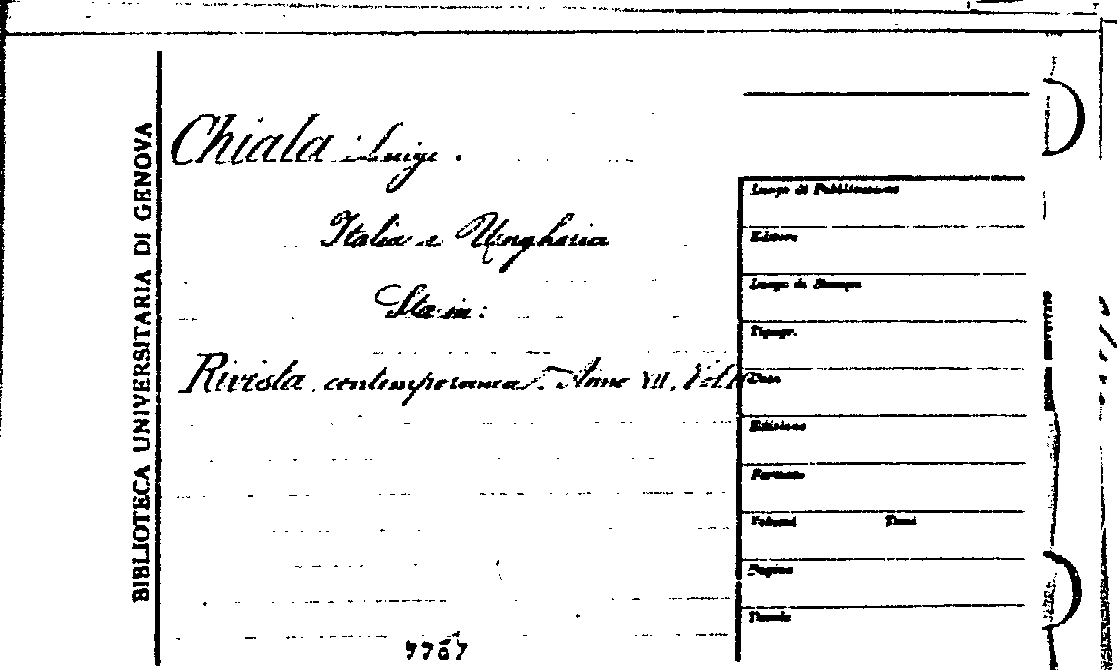 BIBLIOTECA UNIVERSITARIA DI GENOVA
Chiala Luigi.
Italia e Ungheria
Sta in:
Rivista contemporanea. Anno VII. Vol.
Luogo di Pubblicazione
Editore
Luogo di Stampa
Tipogr.
Data
Edizione
Formato
Volumi Tomi
Pagine
Tavole